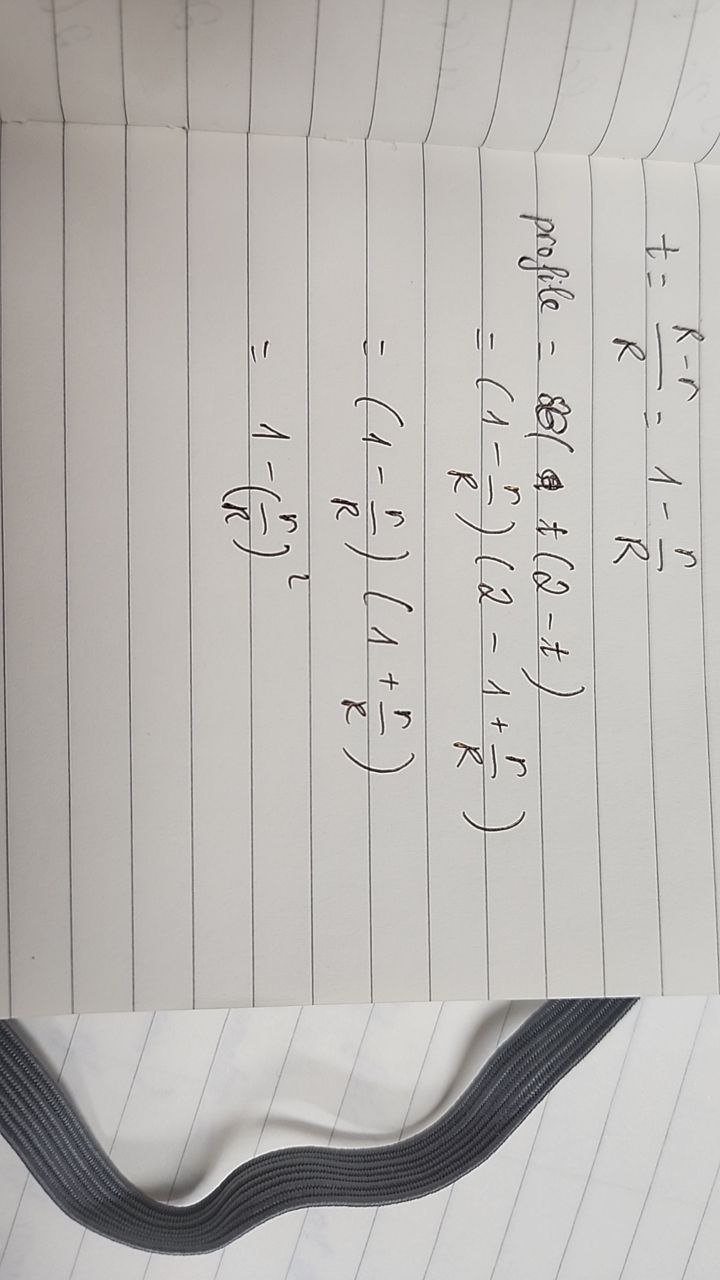 t = (R-r)/R = 1 - r/R
profile = t(2-t)
= (1 - r/R)(2 - 1 + r/R)
= (1 - r/R)(1 + r/R)
= 1 - (r/R)²